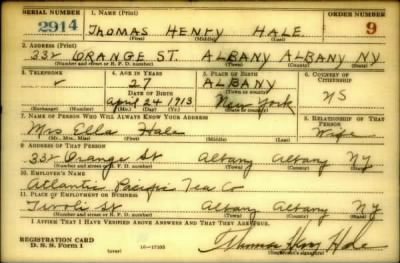 SERIAL NUMBER 1. NAME (Print) ORDER NUMBER
2914 THOMAS HENRY HALE 9
(First) (Middle) (Last)
2. ADDRESS (Print)
332 ORANGE ST. ALBANY ALBANY NY
(Number and street or R. F. D. number) (Town) (County) (State)
3. TELEPHONE 4. AGE IN YEARS 5. PLACE OF BIRTH 6. COUNTRY OF CITIZENSHIP
27 ALBANY
DATE OF BIRTH (Town or county)
April 24 1913 New York US
(Exchange) (Number) (Mo.) (Day) (Yr.) (State or country)
7. NAME OF PERSON WHO WILL ALWAYS KNOW YOUR ADDRESS 8. RELATIONSHIP OF THAT PERSON
Mrs Ella Hale Wife
(Mr., Mrs., Miss) (First) (Middle) (Last)
9. ADDRESS OF THAT PERSON
332 Orange St Albany Albany NY
(Number and street or R. F. D. number) (Town) (County) (State)
10. EMPLOYER'S NAME
Atlantic Pacific Tea Co
11. PLACE OF EMPLOYMENT OR BUSINESS
Tivoli St Albany Albany NY
(Number and street or R. F. D. number) (Town) (County) (State)
I AFFIRM THAT I HAVE VERIFIED ABOVE ANSWERS AND THAT THEY ARE TRUE.
REGISTRATION CARD
D. S. S. Form 1 (over) 16—17105 Thomas Henry Hale
(Registrant's signature)